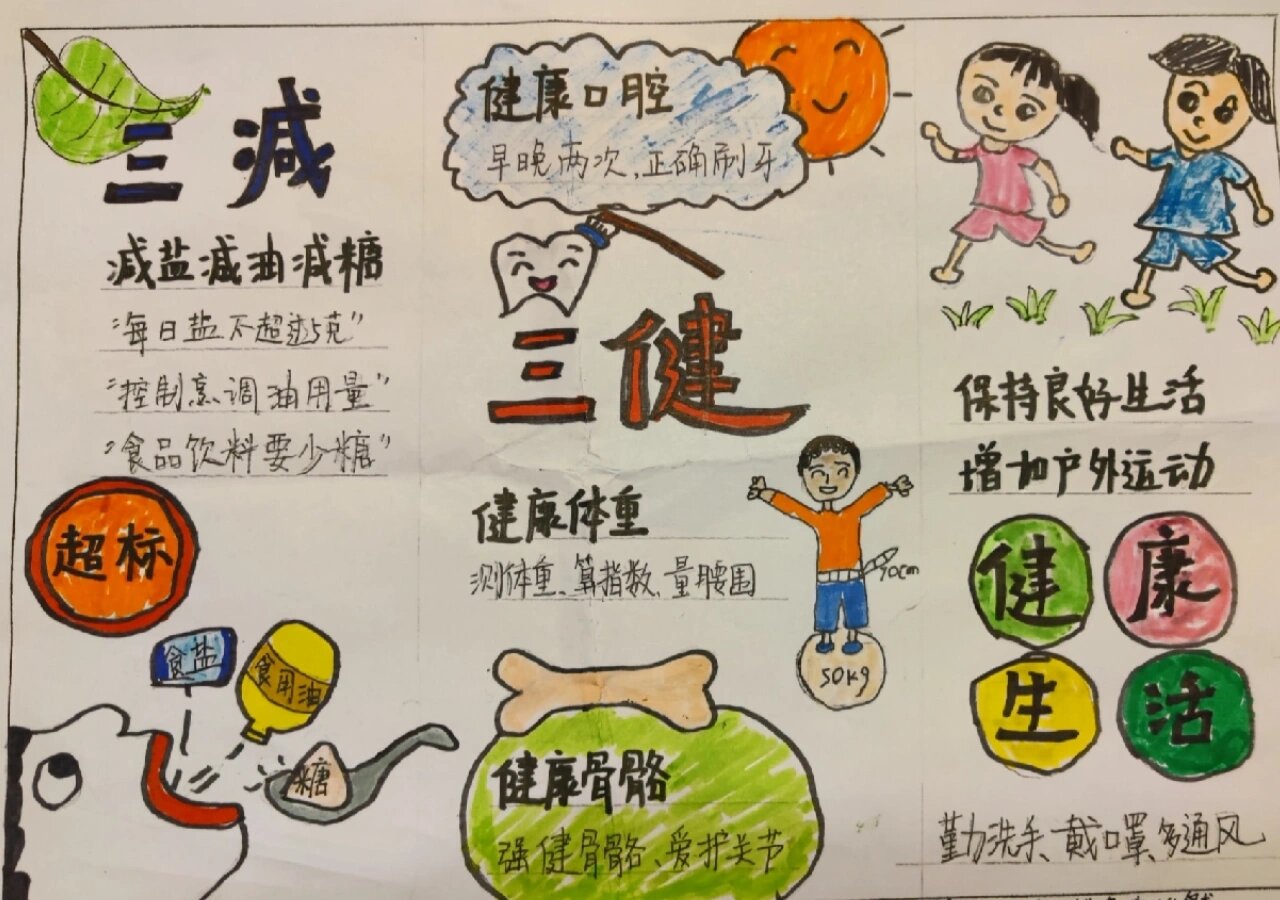 三减
减盐减油减糖
“每日盐不超过5克”
“控制烹调油用量”
“食品饮料要少糖”
超标
食盐
食用油
糖
健康口腔
早晚两次,正确刷牙
三健
健康体重
测体重、算指数、量腰围
90cm
50kg
健康骨骼
强健骨骼、爱护关节
保持良好生活
增加户外运动
健康
生活
勤洗手、戴口罩、多通风